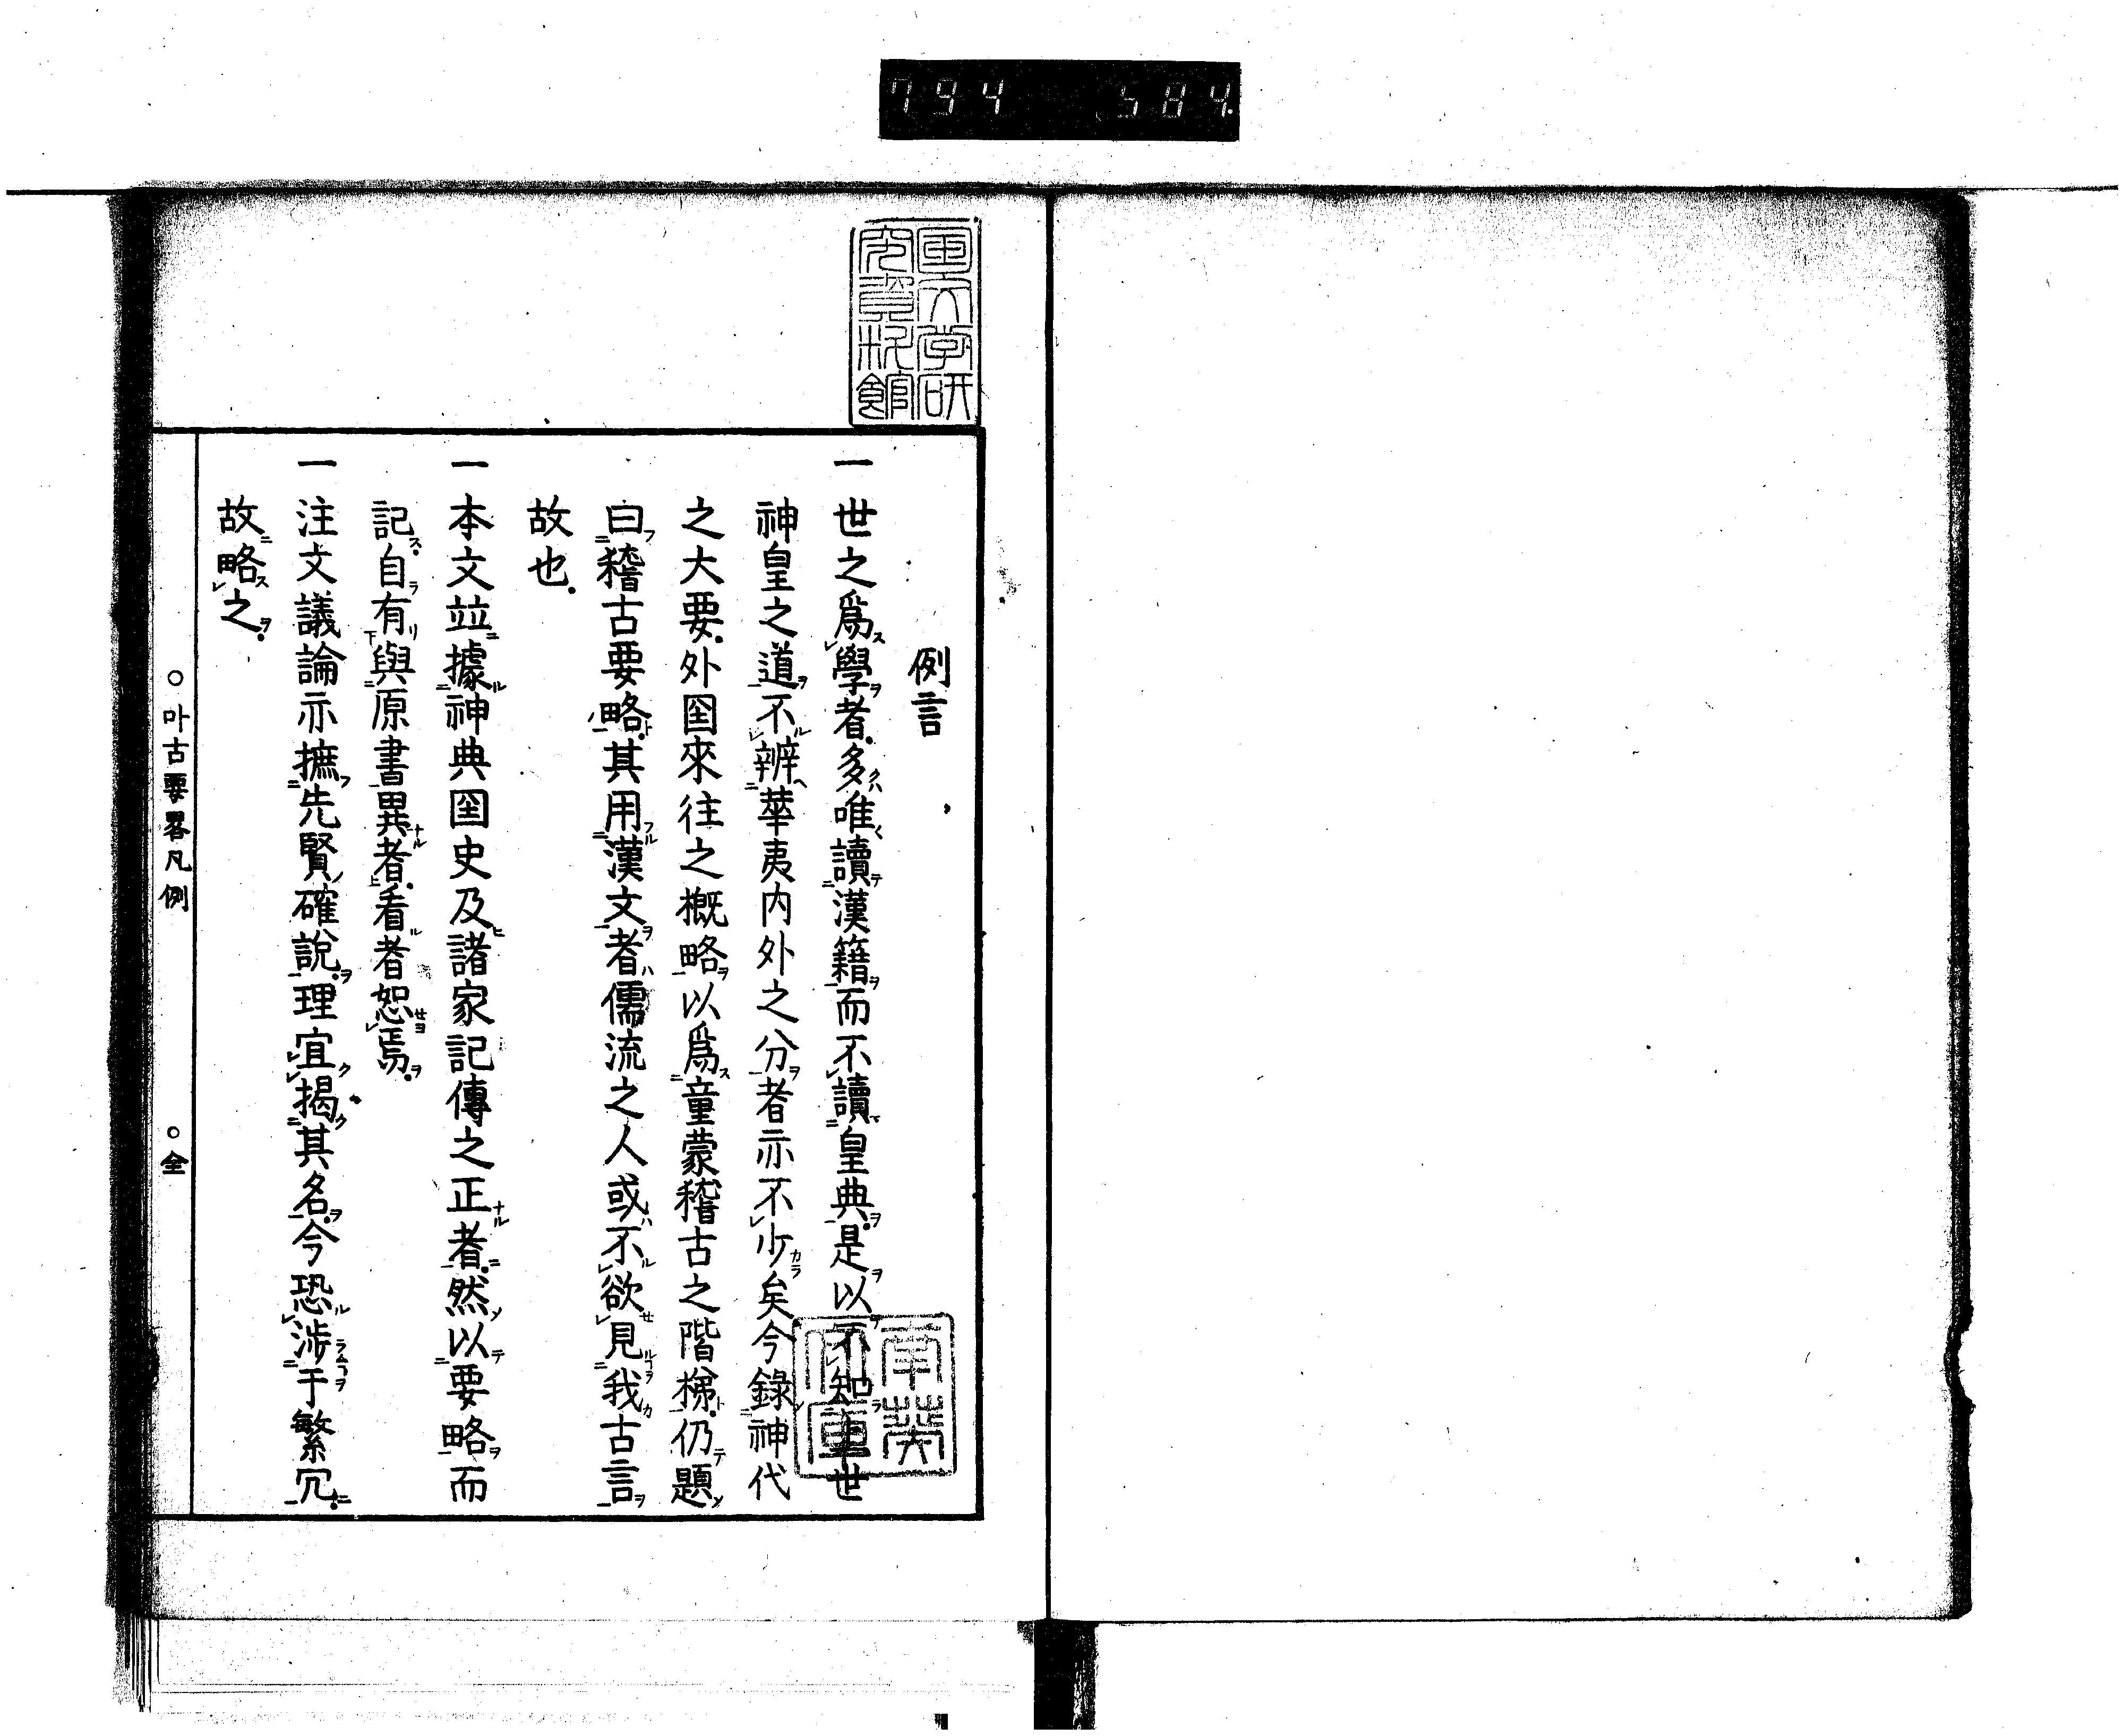 794 584
国文学研
究資料館
例言
一世之爲學者多唯讀漢籍而不讀皇典是以不知上世
神皇之道不辨華夷內外之分者亦不少矣今錄神代
之大要外国來往之概略以爲童蒙稽古之階梯仍題
曰稽古要略其用漢文者儒流之人或不欲見我古言
故也
一本文竝據神典国史及諸家記傳之正者然以要略而
記自有與原書異者看者恕焉
一注文議論亦摭先賢確說理宜揭其名今恐涉于繁冗
故略之
古要畧凡例
全